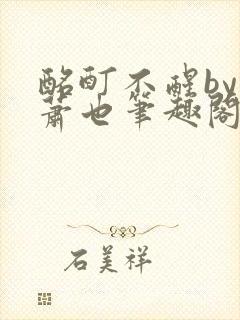 酩酊不醒by
萧也笔趣阁
石美祥